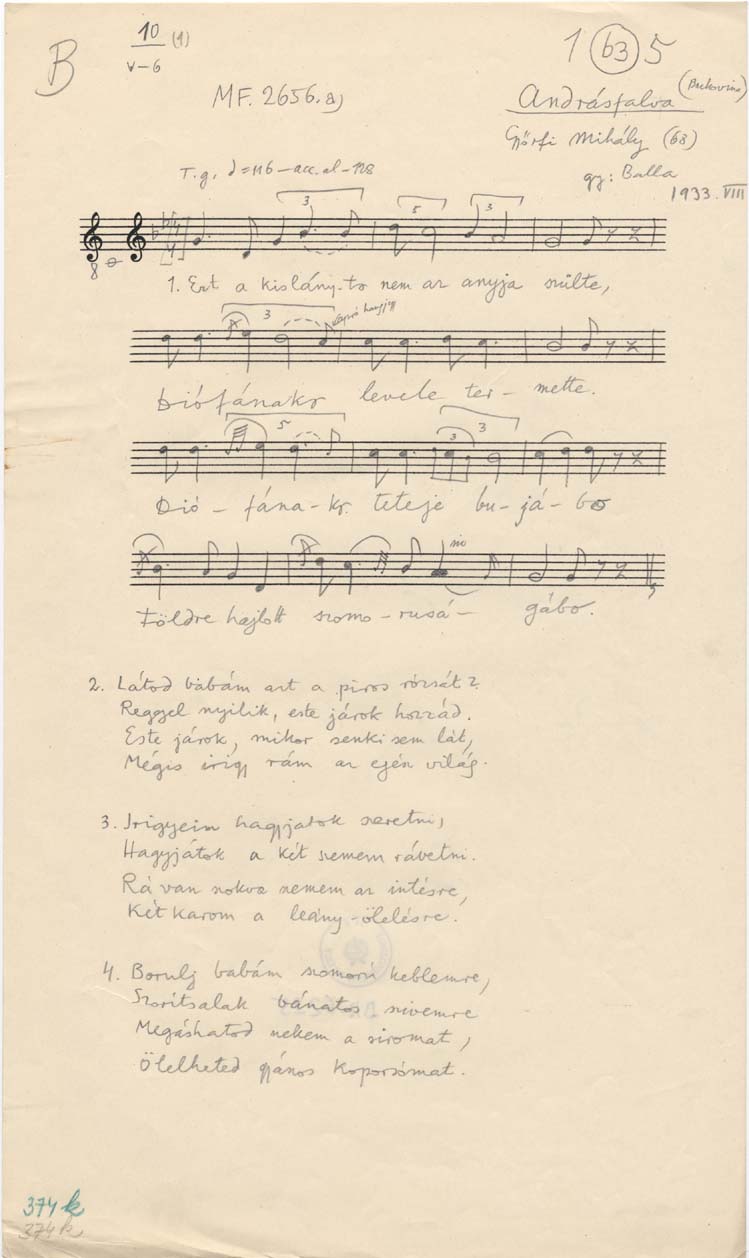 B
10 (1)
V-6
1 (63) 5
MF. 2656. a)
Andrásfalva (Bukovina)
Győrfi Mihály (68)
gy: Balla
1933. VIII
T.g. = 116 - acc. al - 128
3 5 3
8
1. Ezt a kislány-to nem az anyja szülte,
3
Diófánakr levele ter - mette.
5 3 3
Dió - fána - kr. teteje bu - já - bo
Földre hajlott szomo - rusá - gábo.
2. Látod babám azt a piros rózsát?
Reggel nyilik, este járok hozzád.
Este járok, mikor senki sem lát,
Mégis irigy rám az egén világ.
3. Irigyeim hagyjatok szeretni,
Hagyjátok a két szemem rávetni.
Rá van szokva szemem az intésre,
Két karom a leány-ölelésre.
4. Borulj babám szomorú keblemre,
Szoritsalak bánatos szivemre
Megáshatod nekem a siromat,
Ölelheted gyászos koporsómat.
374 k
374 k